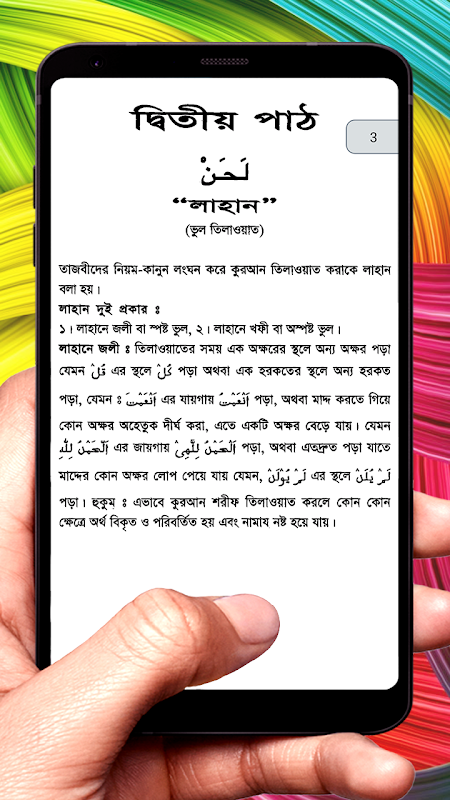 দ্বিতীয় পাঠ
3
لَحَنْ
“লাহান”
(ভুল তিলাওয়াত)
তাজবীদের নিয়ম-কানুন লংঘন করে কুরআন তিলাওয়াত করাকে লাহান
বলা হয়।
লাহান দুই প্রকার ঃ
১। লাহানে জলী বা স্পষ্ট ভুল, ২। লাহানে খফী বা অস্পষ্ট ভুল।
লাহানে জলী ঃ তিলাওয়াতের সময় এক অক্ষরের স্থলে অন্য অক্ষর পড়া
যেমন قُلْ এর স্থলে كُلْ পড়া অথবা এক হরকতের স্থলে অন্য হরকত
পড়া, যেমন ঃ اَنْعَمْتَ এর যায়গায় اَنْعَمْتُ পড়া, অথবা মাদ্দ করতে গিয়ে
কোন অক্ষর অহেতুক দীর্ঘ করা, এতে একটি অক্ষর বেড়ে যায়। যেমন
اَلْحَمْدُ لِلّٰهِ এর জায়গায় পড়া, অথবা এতদ্রুত পড়া যাতে
মাদ্দের কোন অক্ষর লোপ পেয়ে যায় যেমন, لَمْ يُوْلَدْ এর স্থলে لَمْ يُلَدْ
পড়া। হুকুম ঃ এভাবে কুরআন শরীফ তিলাওয়াত করলে কোন কোন
ক্ষেত্রে অর্থ বিকৃত ও পরিবর্তিত হয় এবং নামায নষ্ট হয়ে যায়।